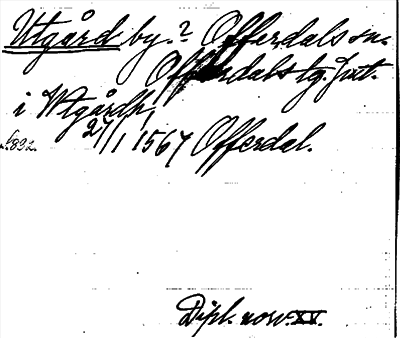 Utgård by.? Offerdals sn.
Offerdals tg. Jmt.
i Utgårdh,
27/1 1567 Offerdal.
n:o 892.
Dipl. norv. XV.